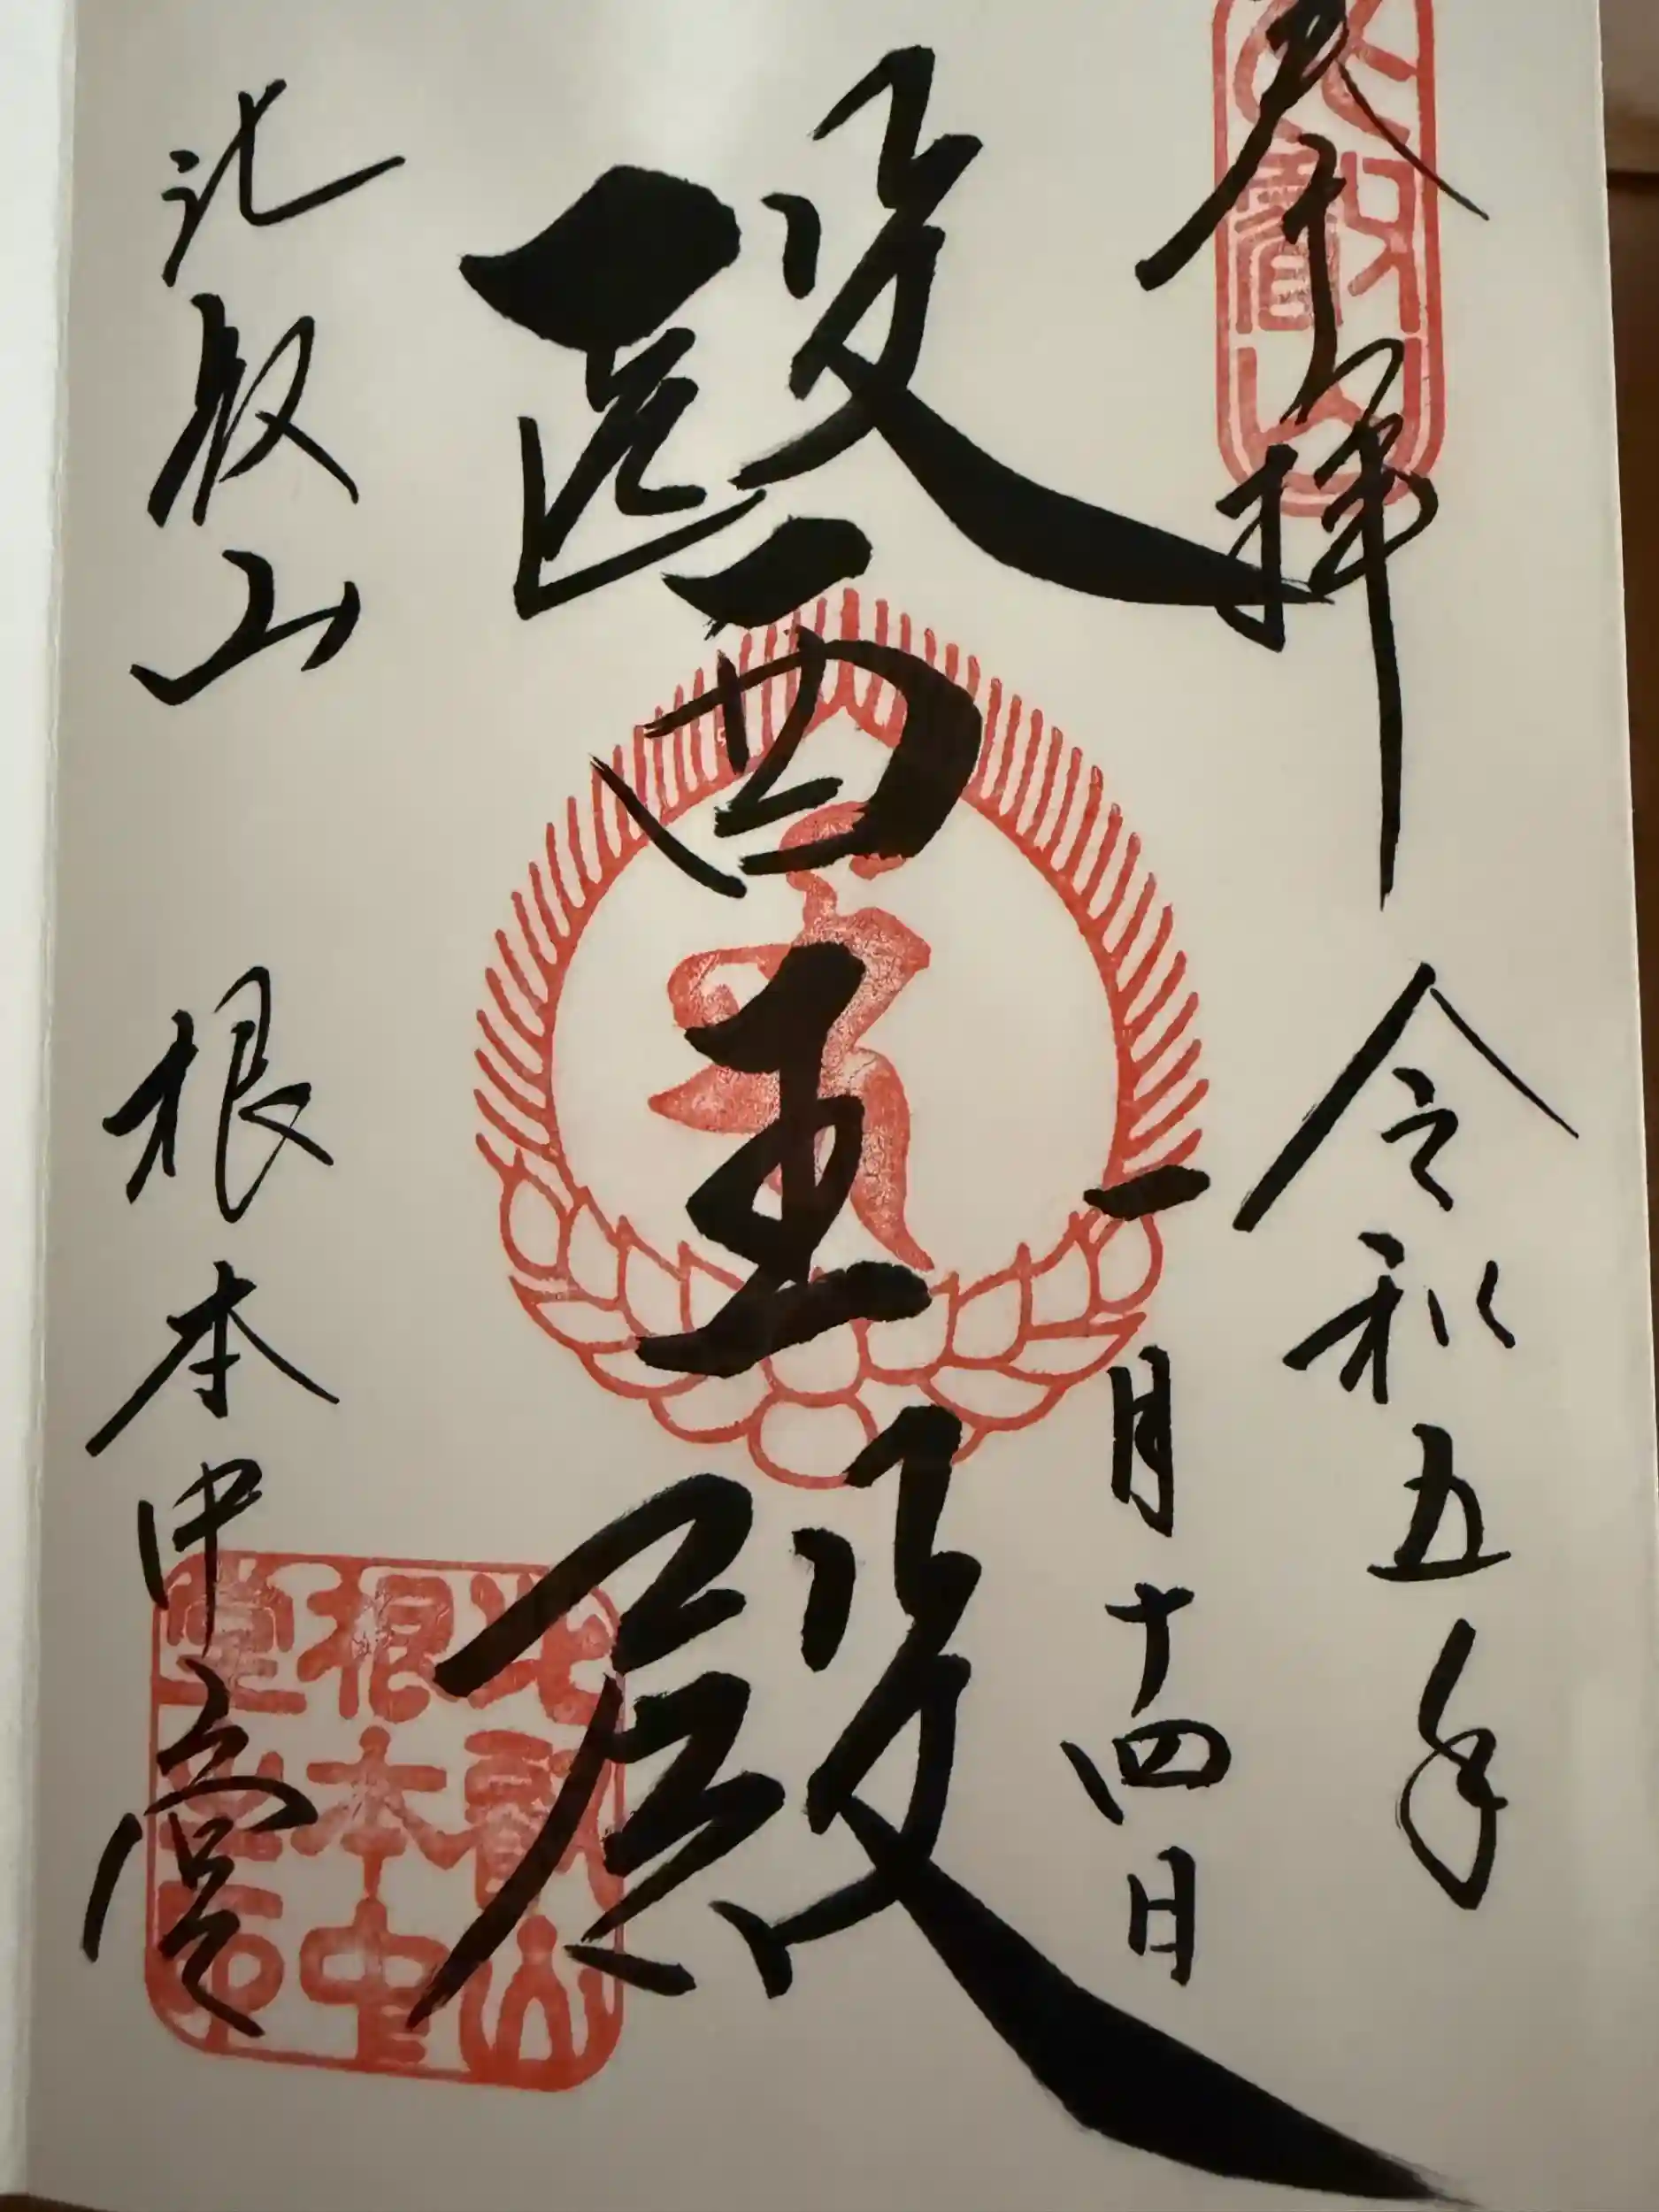 比叡山
奉拝 令和五年
一月十四日
醫王殿
比叡山 根本中堂
比叡山
根本中
堂之印